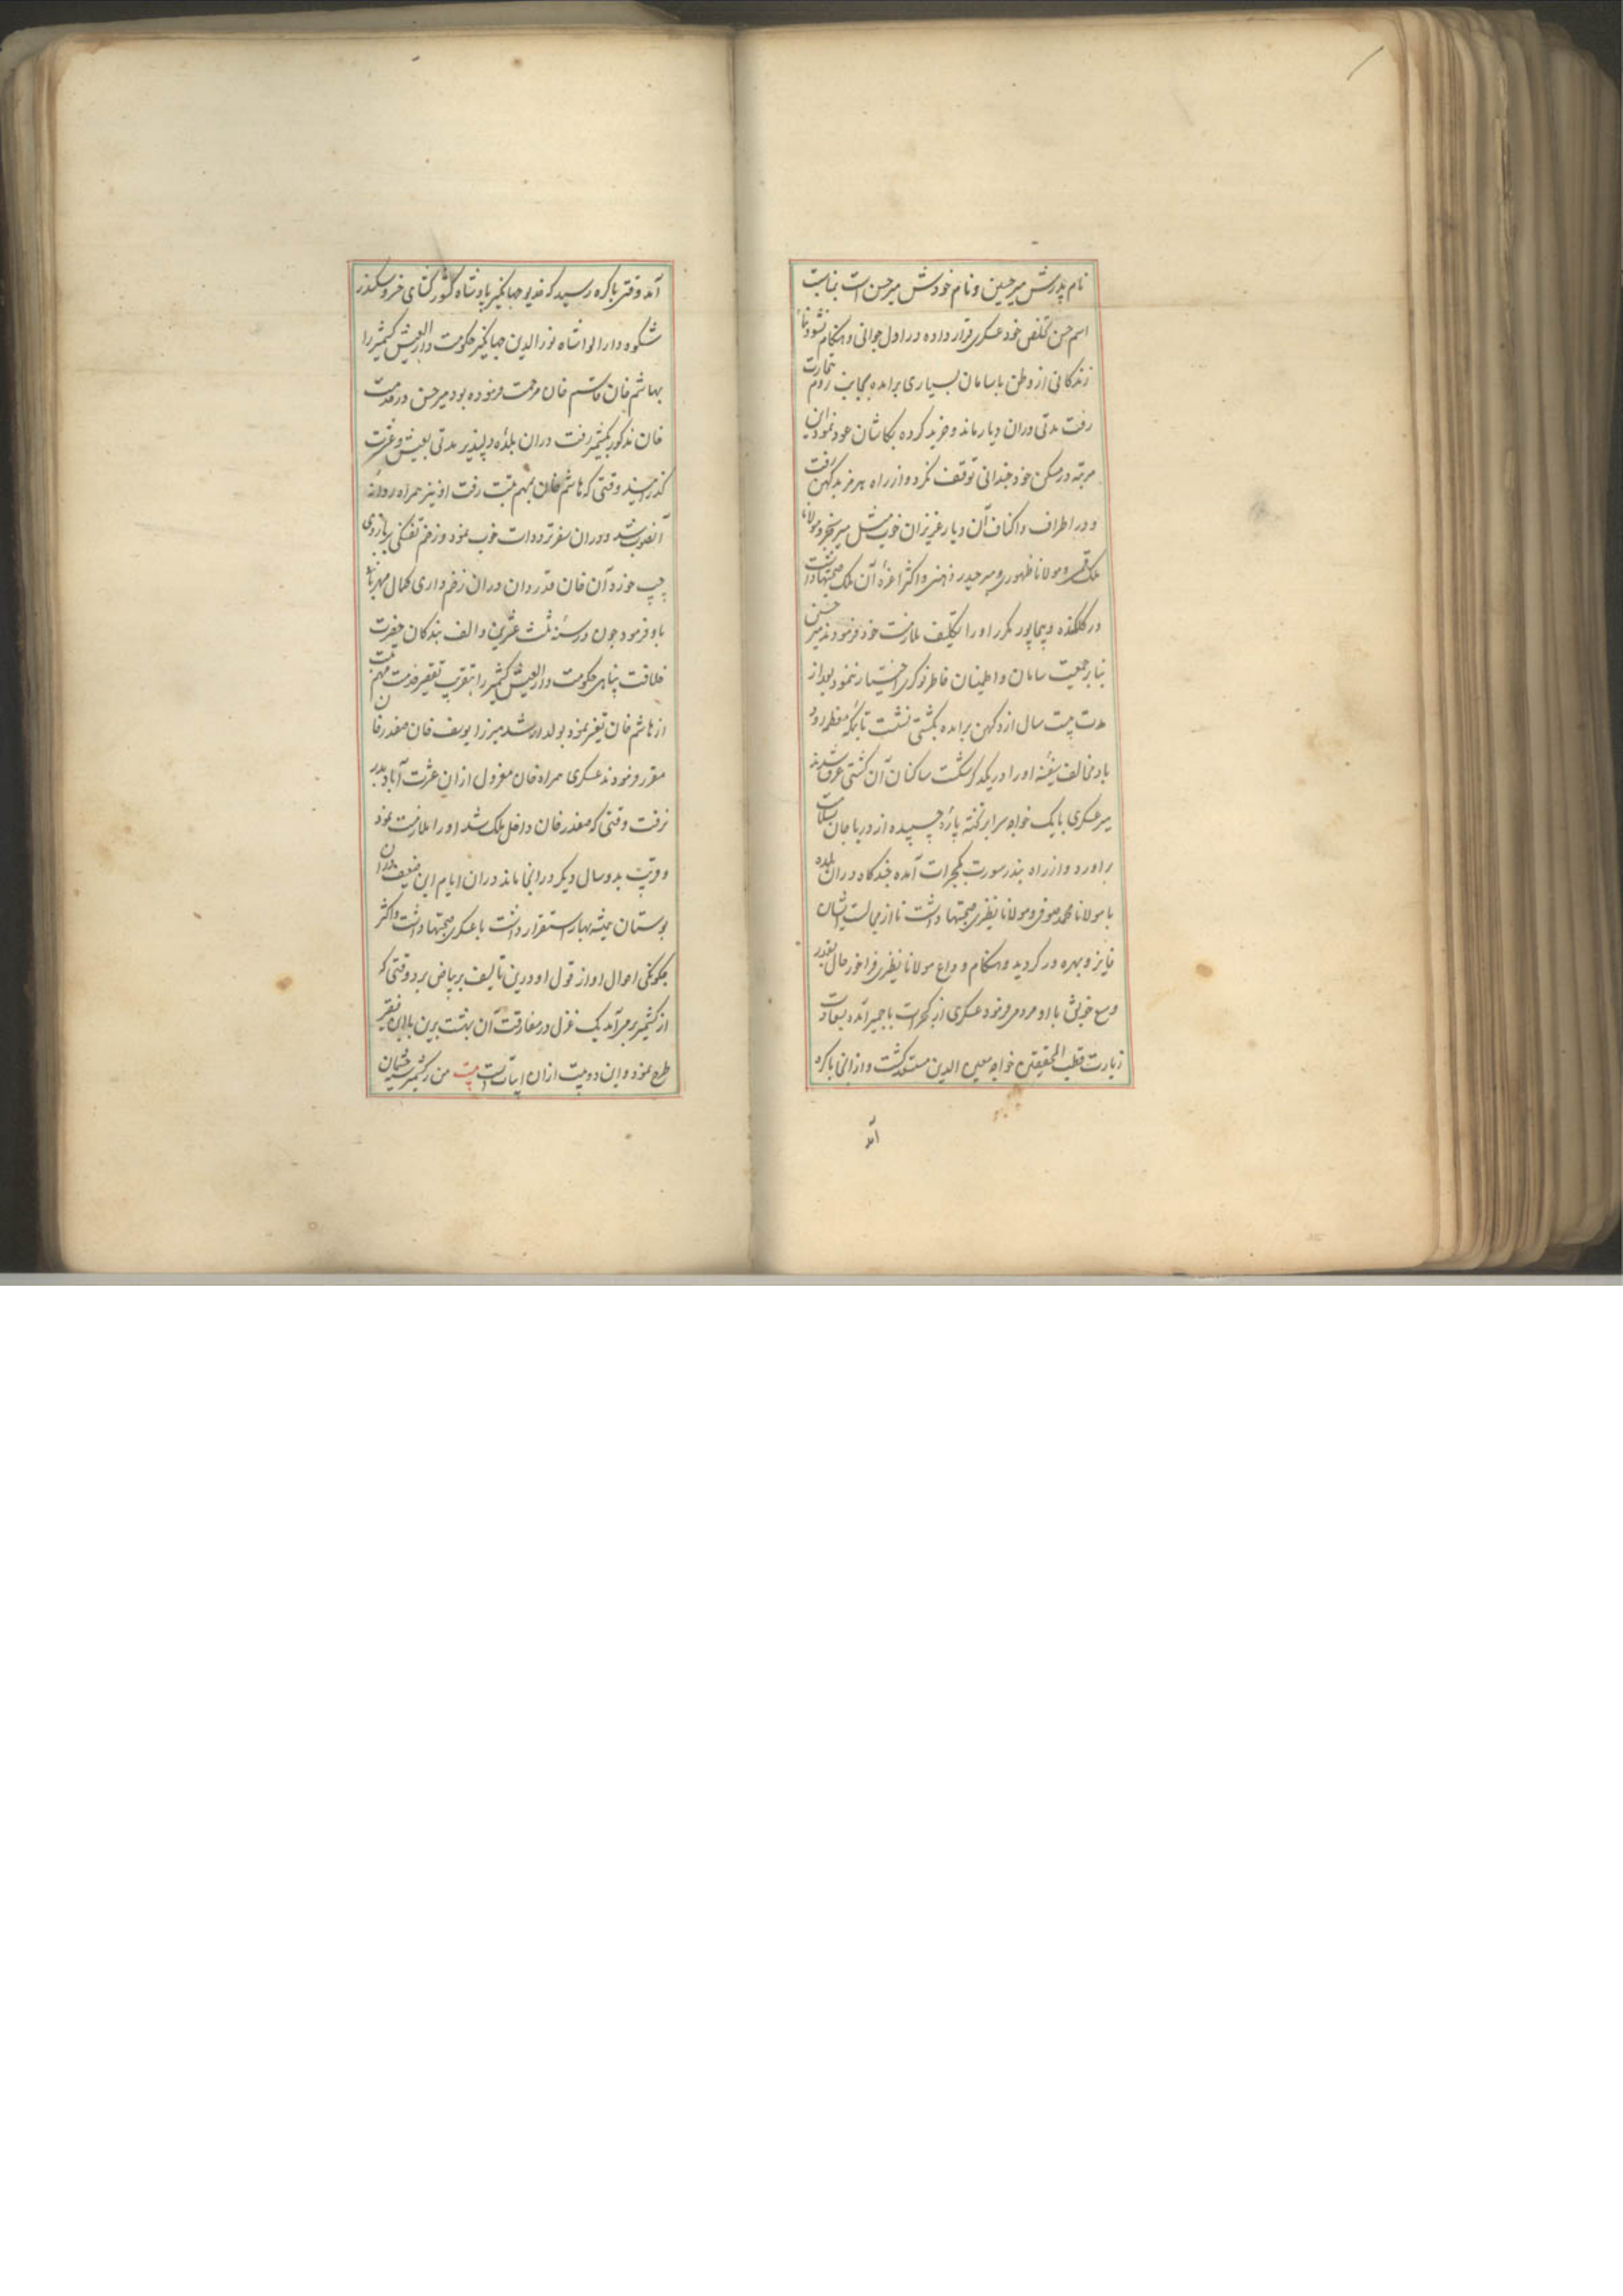 نام پدرش میر حسین و نام خودش میر حسن است بمناسبت
اسم حسن تخلص خود عسکری قرار داده در اول جوانی و هنکام نشو و نما
زندکانی از وطن با سامان بسیاری برامده بجانب روم بتجارت
رفت مدتی دران دیار ماند و خرید کرده بکاشان عود نمود این
مرتبه در مسکن خود چندانی توقف نکرد و از راه هرمز بدکهن رفت
و در اطراف و اکناف آن دیار عزیزان خوب مثل میر سنجر و مولانا
ملک قمی و مولانا ظهوری و میر حیدر ذهنی و اکثر اعزهٔ آن ملک صحبتها داشت
در کلکنده و بیجاپور مکرر او را تکلیف ملازمت خود فرمودند میر حسن
بنابر جمعیت سامان و اطمینان خاطر نوکری اختیار ننمود بعد از
مدت بیست سال از دکهن برامده بکشتی نشست تا بمکه معظمه رود
باد مخالف سفینه او را در یکدکر شکست ساکنان آن کشتی غرق شدند
میر عسکری با یک خواجه سرا بر تخته پارهٔ چسپیده از دریا جان بسلامت
براورد و از راه بندر سورت بکجرات آمده چندکاه دران بلده
با مولانا محمد صوفی و مولانا نظیری صحبتها داشت تا از مجالست ایشان
فایز و بهره ور کردید و هنکام وداع مولانا نظیری فراخور حال بقدر
وسع خویش با او مردمی فرمود عسکری از کجرات باجمیر آمده بسعادت
زیارت قطب المحققین خواجه معین الدین مستسعد کشت و از انجا باکره
آمد
آمد وقتی باکره رسید که خدیو جهانکیر پادشاه کشور کشای خسرو سکندر
شکوه دارا لوا شاه نور الدین جهانکیر حکومت دار العیش کشمیر را
بهاشم خان قاسم خان مرحمت فرموده بود میر حسن در خدمت
خان مذکور بکشمیر رفت دران بلدهٔ دلپذیر مدتی بعیش و عشرت
کذرانید وقتی که هاشم خان بمهم تبت رفت او نیز همراه روانهٔ
آنصوب شد و دران سفر ترددات خوب نمود و زخم تفنکی بر بازوی
چپ خورد آن خان قدردان دران زخم داری کمال مهربانی
باو فرمود چون در سنه ثلث عشرین و الف بندکان حضرت
خلافت پناهی حکومت دار العیش کشمیر را بتقریب تقصیر خدمت مهم تبت
از هاشم خان تغیر نمود بولد ارشد میرزا یوسف خان صفدر خان
مقرر فرمودند عسکری همراه خان معزول ازان عشرت آباد بدر
نرفت وقتی که صفدر خان داخل ملک شد او را ملازمت نمود
و قریب بدو سال دیکر در انجا ماند دران ایام این ضعیف دران
بوستان همیشه بهار استقرار داشت با عسکری صحبتها داشت و اکثر
چکونکی احوال او از قول او درین تالیف بر بیاض برد وقتی که
از کشمیر برمی آمد یک غزل در مفارقت آن بهشت برین باین فقیر
طرح نمود و این دو بیت ازان ابیات است بیت من ز کشمیر